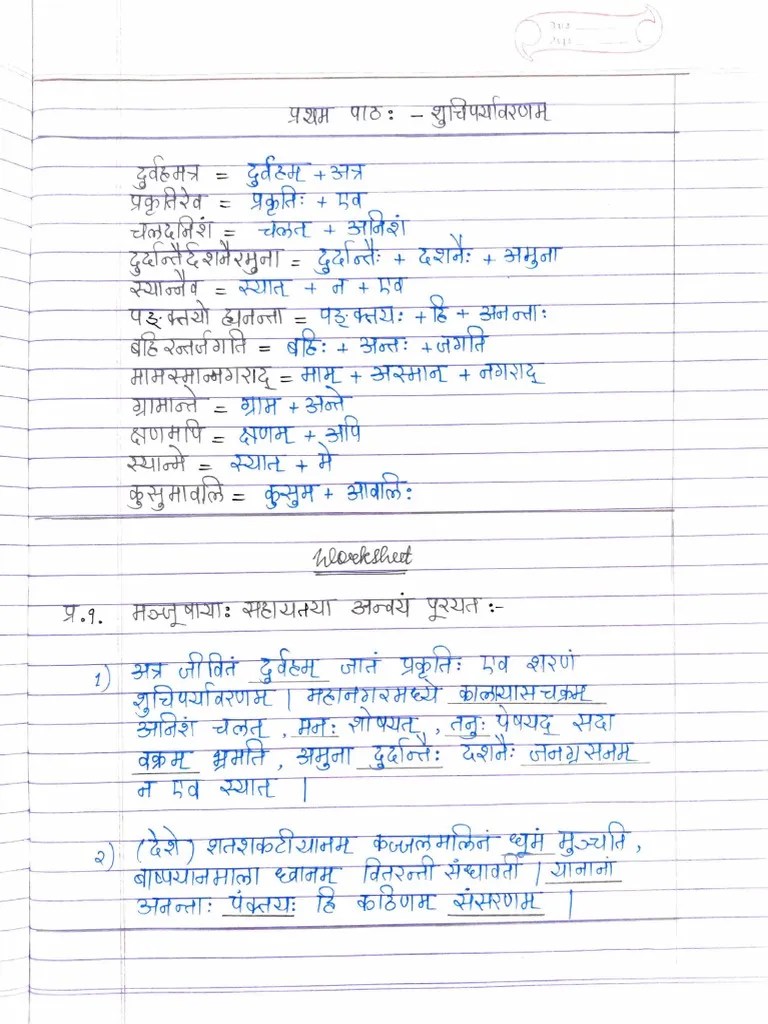 प्रथम पाठः - शुचिपर्यावरणम
दुर्वहमत्र = दुर्वहम् + अत्र
प्रकृतिरेव = प्रकृतिः + एव
चलदनिशं = चलत् + अनिशं
दुर्दान्तैर्दशनैरमुना = दुर्दान्तैः + दशनैः + अमुना
स्यान्नैव = स्यात् + न + एव
पङ्क्तयो ह्यनन्ता = पङ्क्तयः + हि + अनन्ताः
बहिरन्तर्जगति = बहिः + अन्तः + जगति
मामस्मान्नगराद् = माम् + अस्मान् + नगराद्
ग्रामान्ते = ग्राम + अन्ते
क्षणमपि = क्षणम् + अपि
स्यान्मे = स्यात् + मे
कुसुमावलि = कुसुम + आवलिः
Worksheet
प्र.१. मञ्जूषायाः सहायतया अन्वयं पूरयत :-
1) अत्र जीवितं दुर्वहम् जातं प्रकृतिः एव शरणं
शुचिपर्यावरणम् | महानगरमध्ये कालायासचक्रम्
अनिशं चलत् , मनः शोषयत् , तनुः पेषयद् सदा
वक्रम् भ्रमति , अमुना दुर्दान्तैः दशनैः जनग्रसनम्
न एव स्यात् |
२) (देशे) शतशकटीयानम् कज्जलमलिनं धूमं मुञ्चति ,
बाष्पयानमाला ध्वानम् वितरन्ती संधावती | यानानां
अनन्ताः पंक्तयः हि कठिणम् संसरणम् |